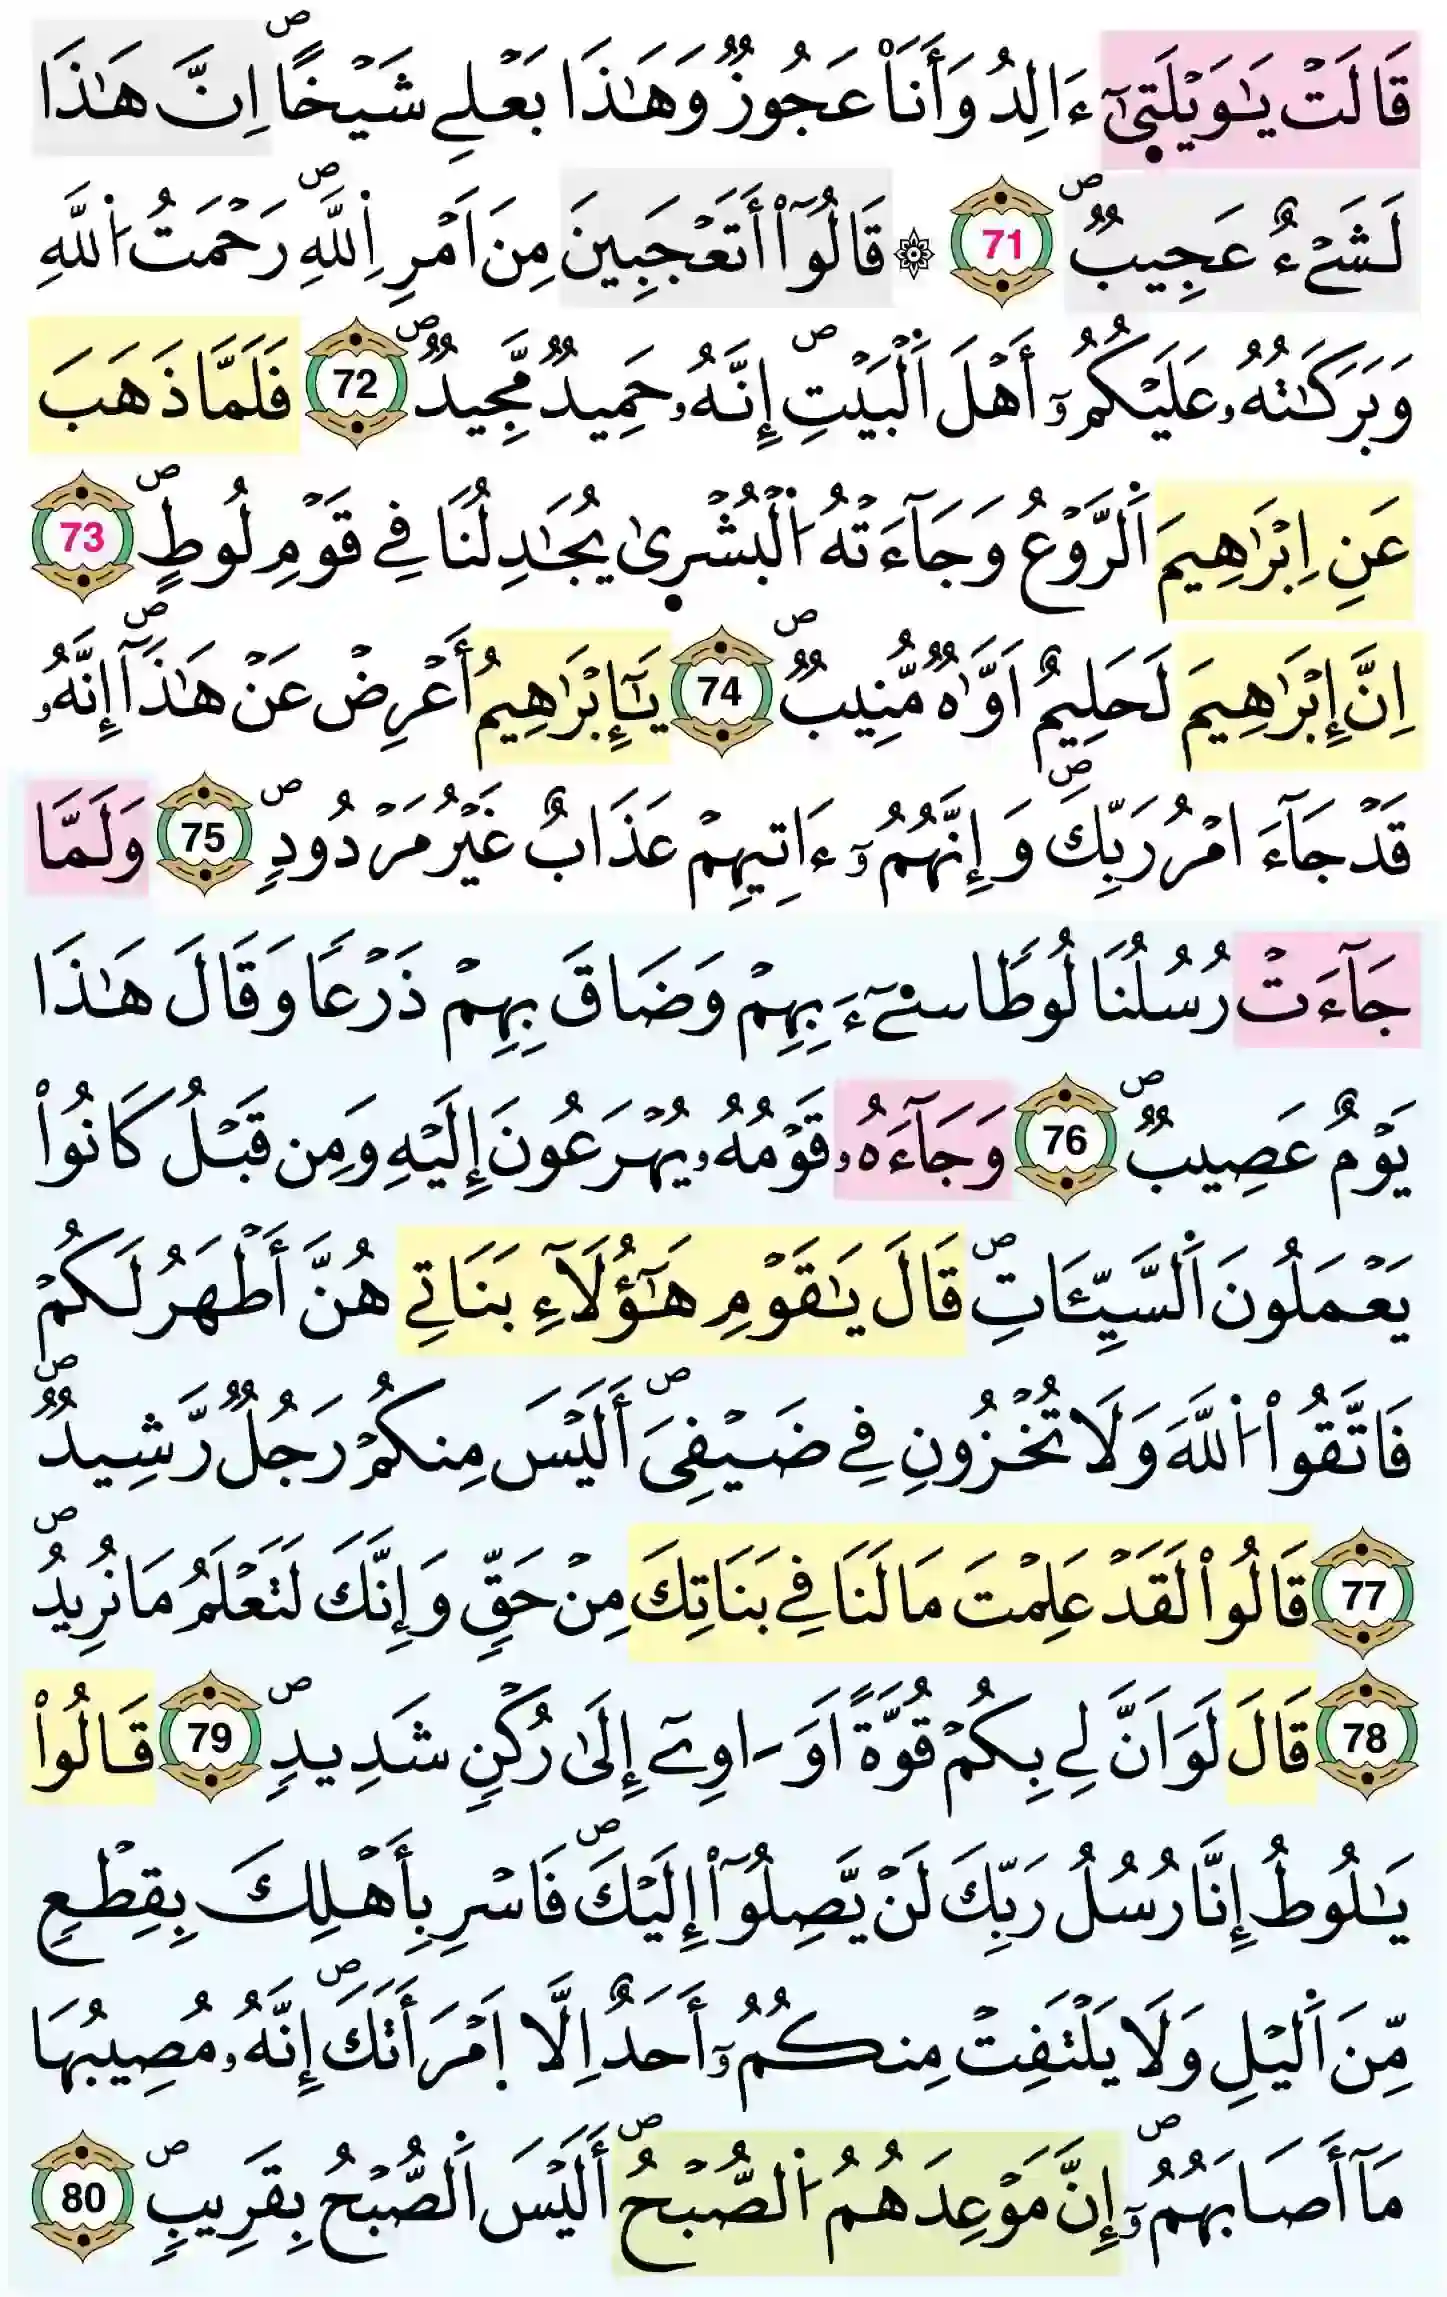 قَالَتْ يَٰوَيْلَتِىٰٓ ءَا۬لِدُ وَأَنَا۠ عَجُوزٞ وَهَٰذَا بَعْلِے شَيْخاًۖ اِنَّ هَٰذَا
لَشَےْءٌ عَجِيبٞۖ 71 ۞ قَالُوٓاْ أَتَعْجَبِينَ مِنَ اَمْرِ اِ۬للَّهِۖ رَحْمَتُ اُ۬للَّهِ
وَبَرَكَٰتُهُۥ عَلَيْكُمُۥٓ أَهْلَ اَ۬لْبَيْتِۖ إِنَّهُۥ حَمِيدٞ مَّجِيدٞۖ 72 فَلَمَّا ذَهَبَ
عَنِ اِبْرَٰهِيمَ اَ۬لرَّوْعُ وَجَآءَتْهُ اُ۬لْبُشْر۪ىٰ يُجَٰدِلُنَا فِے قَوْمِ لُوطٍۖ 73
اِنَّ إِبْرَٰهِيمَ لَحَلِيمٌ اَوَّٰهٞ مُّنِيبٞۖ 74 يَٰٓإِبْرَٰهِيمُ أَعْرِضْ عَنْ هَٰذَآۖ إِنَّهُۥ
قَدْ جَآءَ امْرُ رَبِّكَۖ وَإِنَّهُمُۥٓ ءَاتِيهِمْ عَذَابٌ غَيْرُ مَرْدُودٖۖ 75 وَلَمَّا
جَآءَتْ رُسُلُنَا لُوطاٗ سِےٓءَ بِهِمْ وَضَاقَ بِهِمْ ذَرْعاٗ وَقَالَ هَٰذَا
يَوْمٌ عَصِيبٞۖ 76 وَجَآءَهُۥ قَوْمُهُۥ يُهْرَعُونَ إِلَيْهِ وَمِن قَبْلُ كَانُواْ
يَعْمَلُونَ اَ۬لسَّيِّـَٔاتِۖ قَالَ يَٰقَوْمِ هَٰٓؤُلَآءِ بَنَاتِے هُنَّ أَطْهَرُ لَكُمْ
فَاتَّقُواْ اُ۬للَّهَ وَلَا تُخْزُونِ فِے ضَيْفِىَۖ أَلَيْسَ مِنكُمْ رَجُلٞ رَّشِيدٞۖ
77 قَالُواْ لَقَدْ عَلِمْتَ مَا لَنَا فِے بَنَاتِكَ مِنْ حَقّٖ وَإِنَّكَ لَتَعْلَمُ مَا نُرِيدُۖ
78 قَالَ لَوَ اَنَّ لِے بِكُمْ قُوَّةً اَوَ ـ اوِےٓ إِلَىٰ رُكْنٖ شَدِيدٖۖ 79 قَالُواْ
يَٰلُوطُ إِنَّا رُسُلُ رَبِّكَ لَنْ يَّصِلُوٓاْ إِلَيْكَۖ فَاسْرِ بِأَهْلِكَ بِقِطْعٖ
مِّنَ اَ۬ليْلِ وَلَا يَلْتَفِتْ مِنكُمُۥٓ أَحَدٌ اِلَّا اَ۪مْرَأَتَكَۖ إِنَّهُۥ مُصِيبُهَا
مَآ أَصَابَهُمُۥٓۖ إِنَّ مَوْعِدَهُمُ اُ۬لصُّبْحُۖ أَلَيْسَ اَ۬لصُّبْحُ بِقَرِيبٖۖ 80